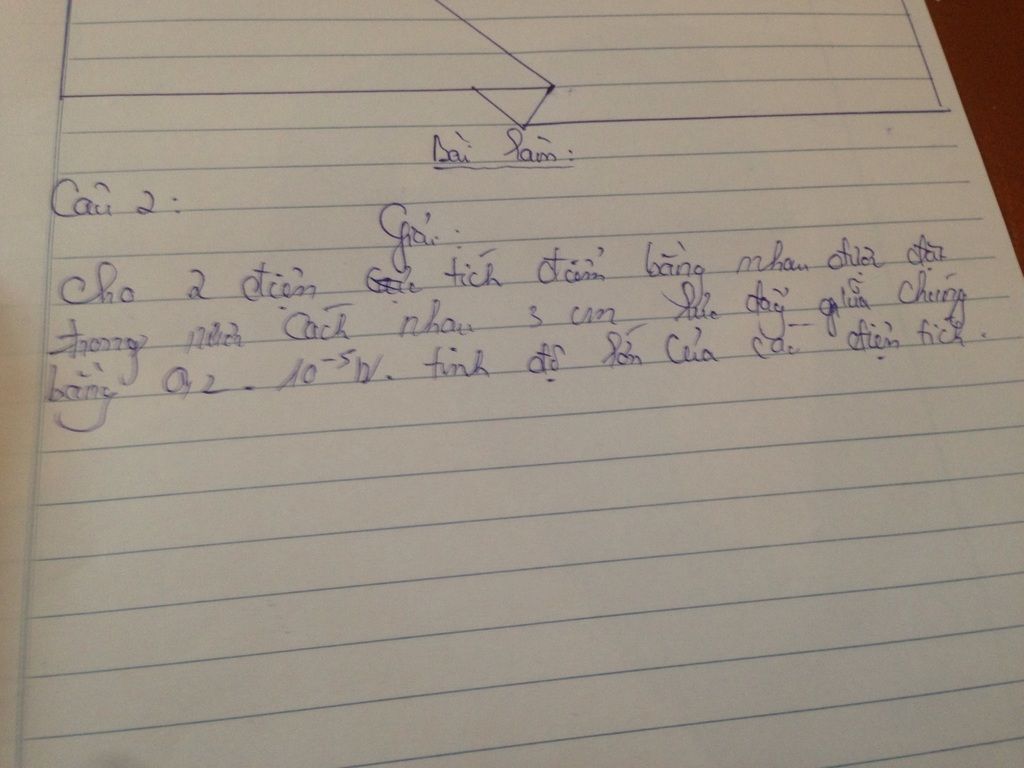 Bài làm:
Câu 2:
Giải:
Cho 2 điện tích điểm bằng nhau được đặt
trong nước cách nhau 3 cm lực đẩy giữa chúng
bằng 0,2 . 10⁻⁵N. tính độ lớn của các điện tích.